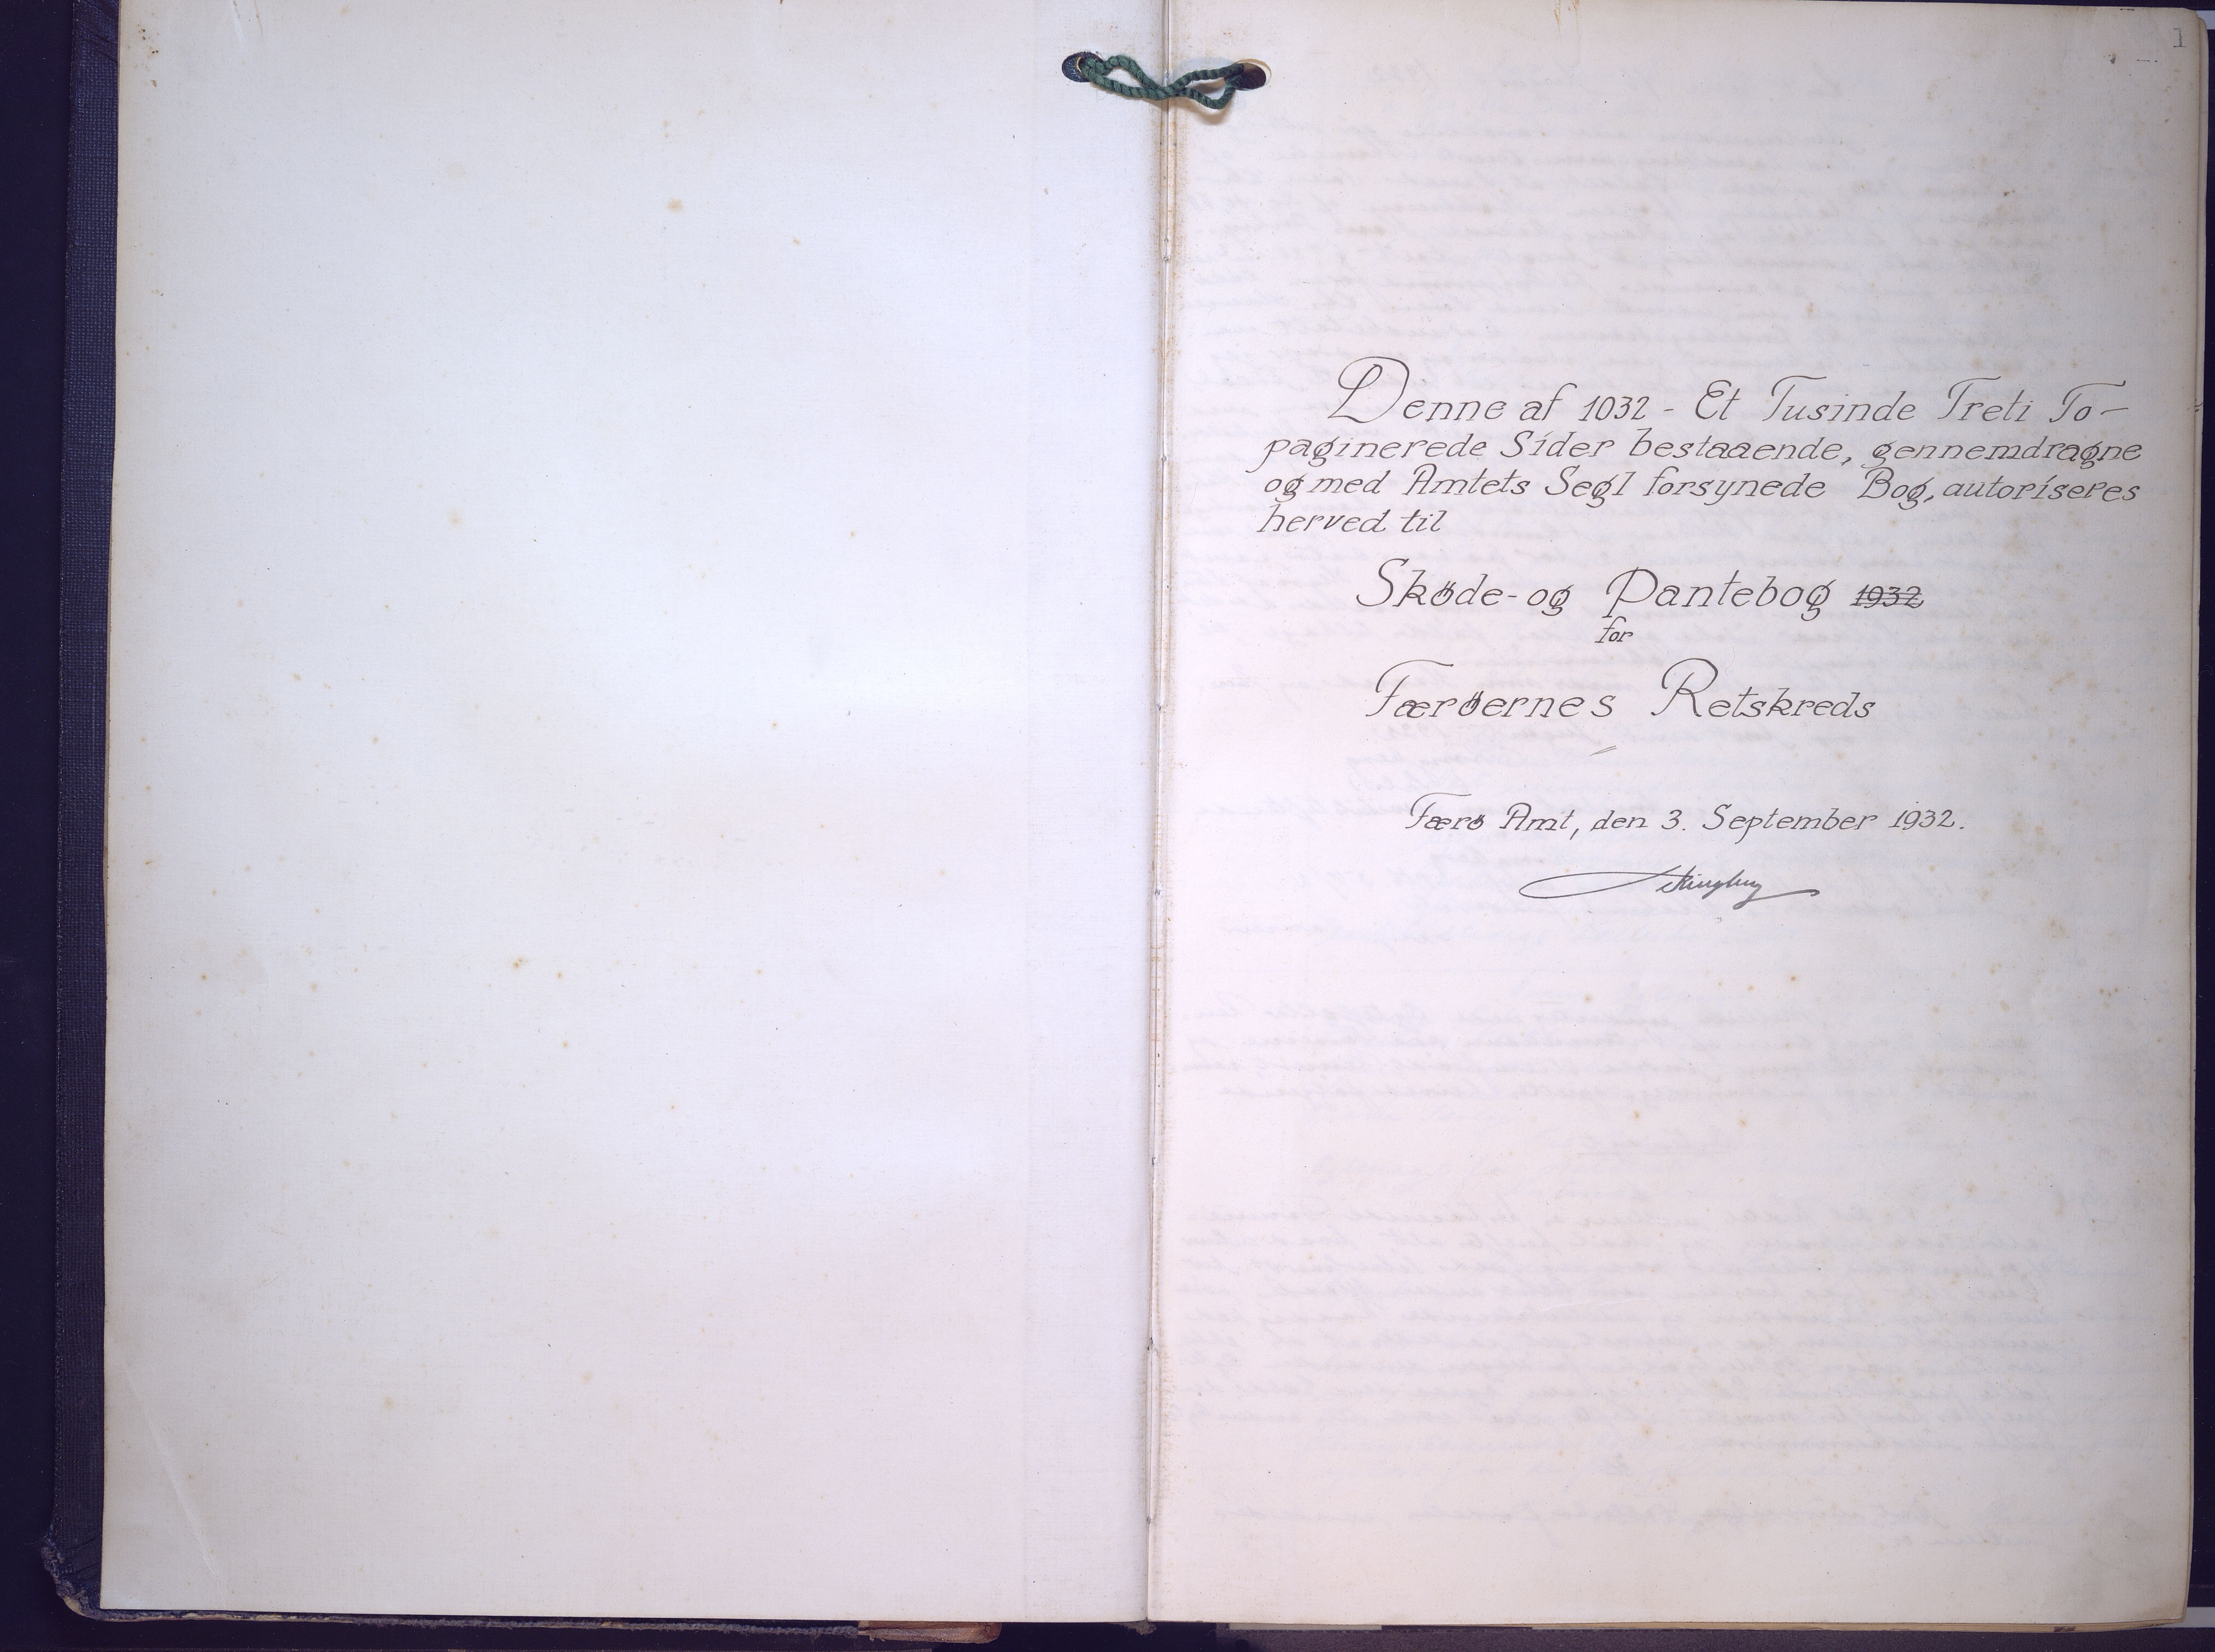 1
Denne af 1032 - Et Tusinde Treti To -
paginerede Sider bestaaende, gennemdragne
og med Amtets Segl forsynede Bog, autoriseres
herved til
Sköde- og Pantebog 1932
for
Færöernes Retskreds
Færö Amt, den 3. September 1932.